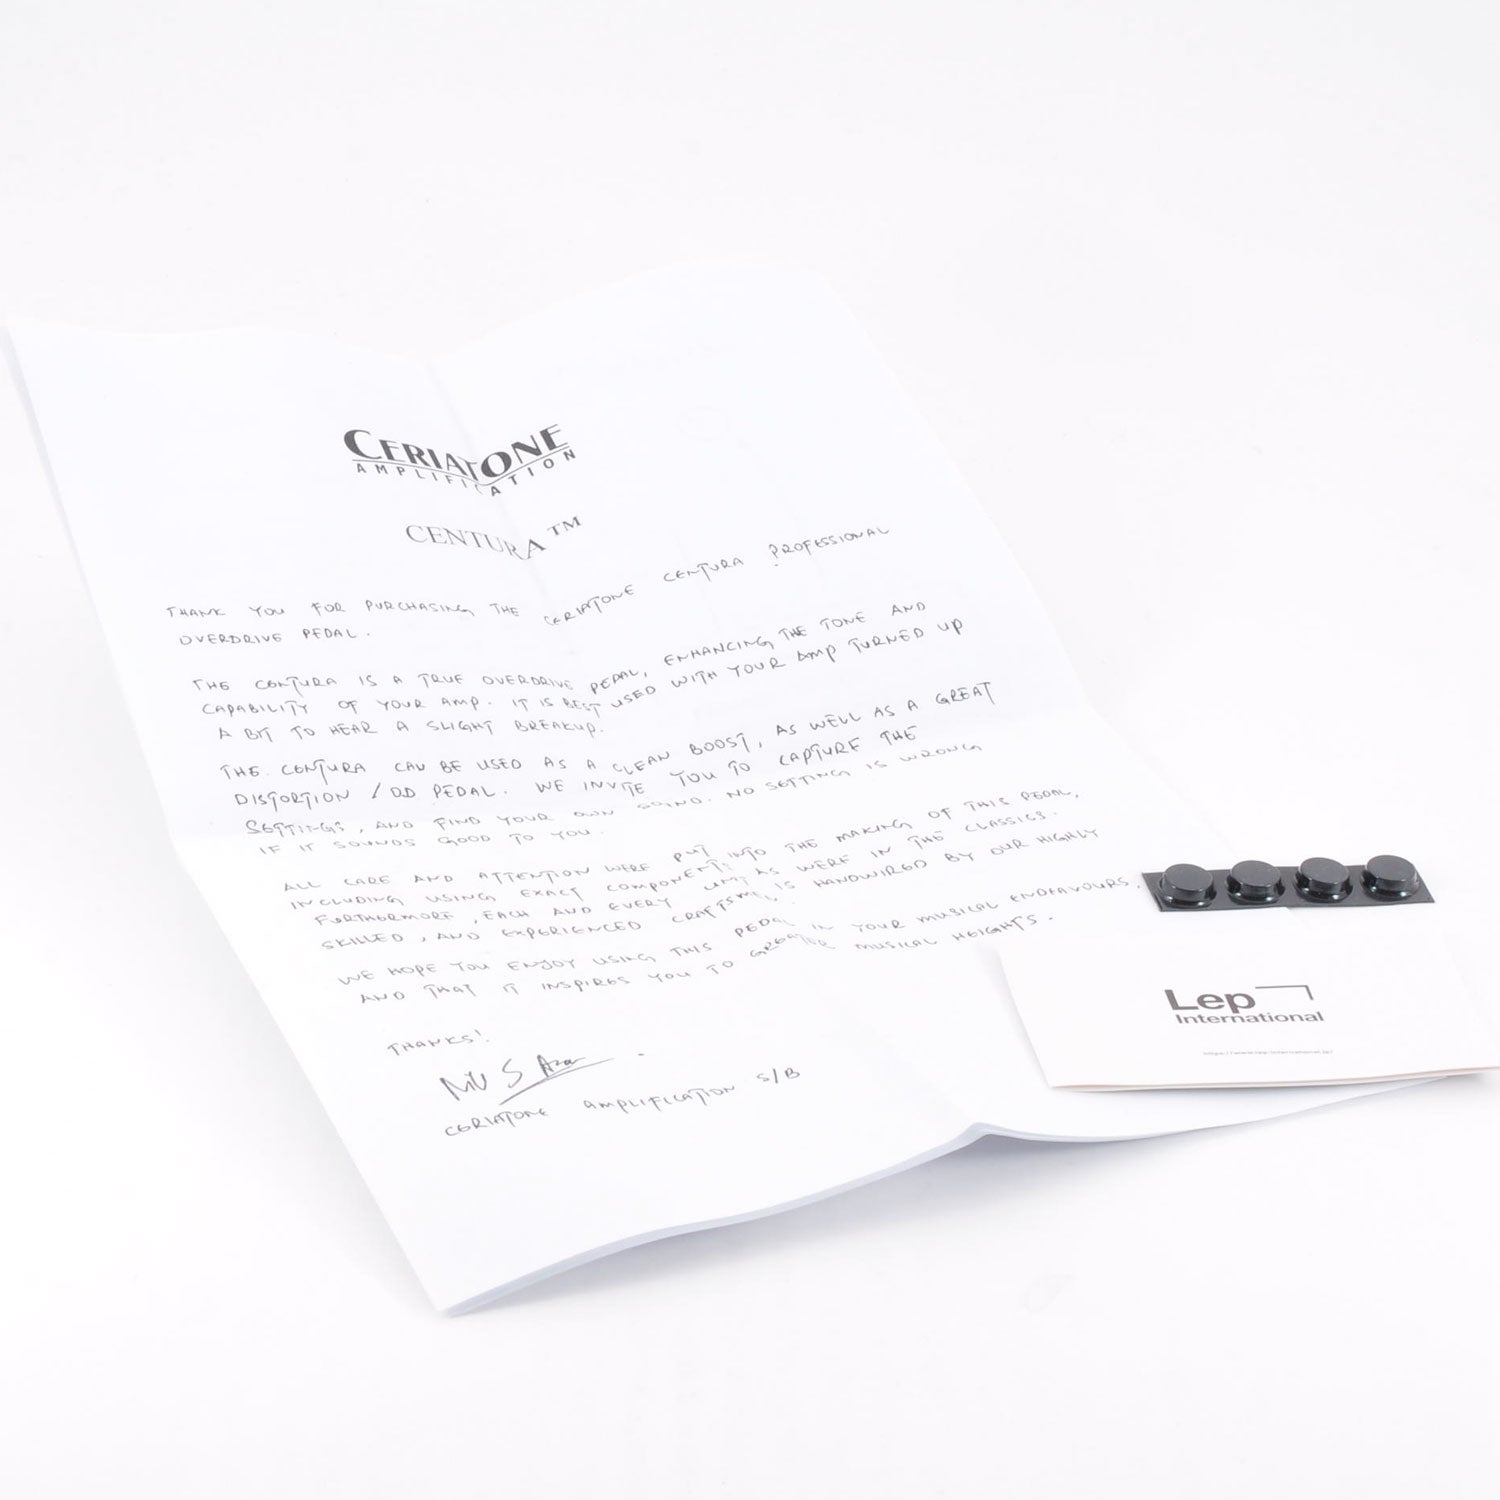 CERIATONE
AMPLIFICATION
CENTURA™
THANK YOU FOR PURCHASING THE CERIATONE CENTURA PROFESSIONAL
OVERDRIVE PEDAL.
THE CENTURA IS A TRUE OVERDRIVE PEDAL, ENHANCING THE TONE AND
CAPABILITY OF YOUR AMP. IT IS BEST USED WITH YOUR AMP TURNED UP
A BIT TO HEAR A SLIGHT BREAKUP.
THE CENTURA CAN BE USED AS A CLEAN BOOST, AS WELL AS A GREAT
DISTORTION / OD PEDAL. WE INVITE YOU TO CAPTURE THE
SETTINGS, AND FIND YOUR OWN SOUND. NO SETTING IS WRONG
IF IT SOUNDS GOOD TO YOU.
ALL CARE AND ATTENTION WERE PUT INTO THE MAKING OF THIS PEDAL,
INCLUDING USING EXACT COMPONENTS AS WERE IN THE CLASSICS.
FURTHERMORE, EACH AND EVERY UNIT IS HANDWIRED BY OUR HIGHLY
SKILLED, AND EXPERIENCED CRAFTSMEN.
WE HOPE YOU ENJOY USING THIS PEDAL IN YOUR MUSICAL ENDEAVOURS.
AND THAT IT INSPIRES YOU TO GREATER MUSICAL HEIGHTS.
THANKS!
CERIATONE AMPLIFICATION S/B
Lep
International